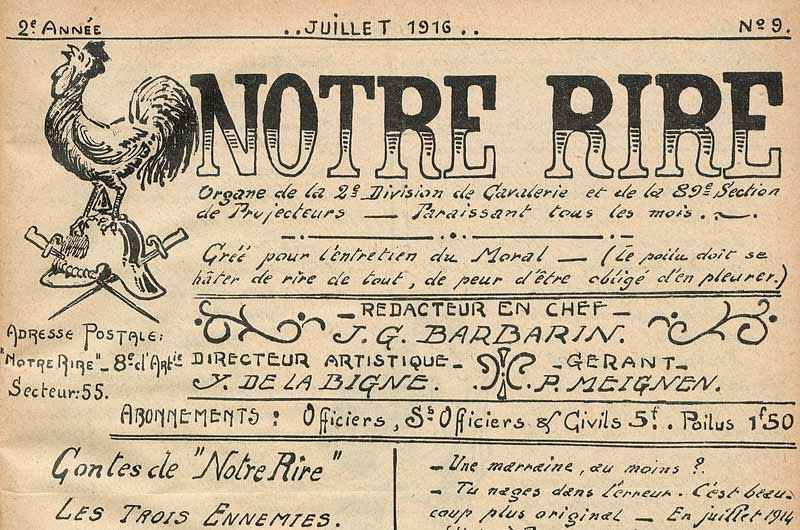 2e Année ..JUILLET 1916.. No 9.
NOTRE RIRE
Organe de la 2e Division de Cavalerie et de la 89e Section
de Projecteurs — Paraissant tous les mois.
Créé pour l'entretien du Moral — (Le poilu doit se
hâter de rire de tout, de peur d'être obligé d'en pleurer.)
— REDACTEUR EN CHEF —
J. G. BARBARIN.
ADRESSE POSTALE:
"NOTRE RIRE" _ 8e d'Artie
Secteur: 55.
DIRECTEUR ARTISTIQUE -
Y. DE LA BIGNE.
- GERANT -
P. MEIGNEN.
ABONNEMENTS : Officiers, Ss Officiers & Civils 5f. Poilus 1f50
Contes de "Notre Rire"
LES TROIS ENNEMIES.
– Une marraine, au moins ?.
– Tu nages dans l'erreur. C'est beau-
coup plus original — En juillet 1914